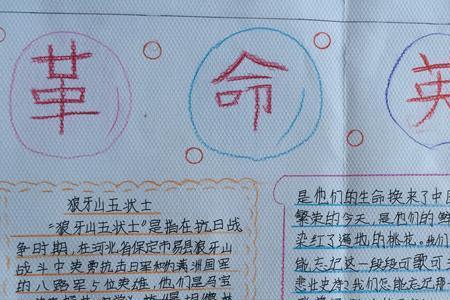 革命英
狼牙山五状士
"狼牙山五状士"是指在抗日战
争日时期,在河北省保定市易县狼牙山
战斗中英勇抗击日军和伪满洲国军
的八路军5位英雄,他们是马宝
是他们的生命换来了中国
繁荣的今天,是他们的鲜
染红了遍地的桃花。我们
能忘记这一段段可歌可